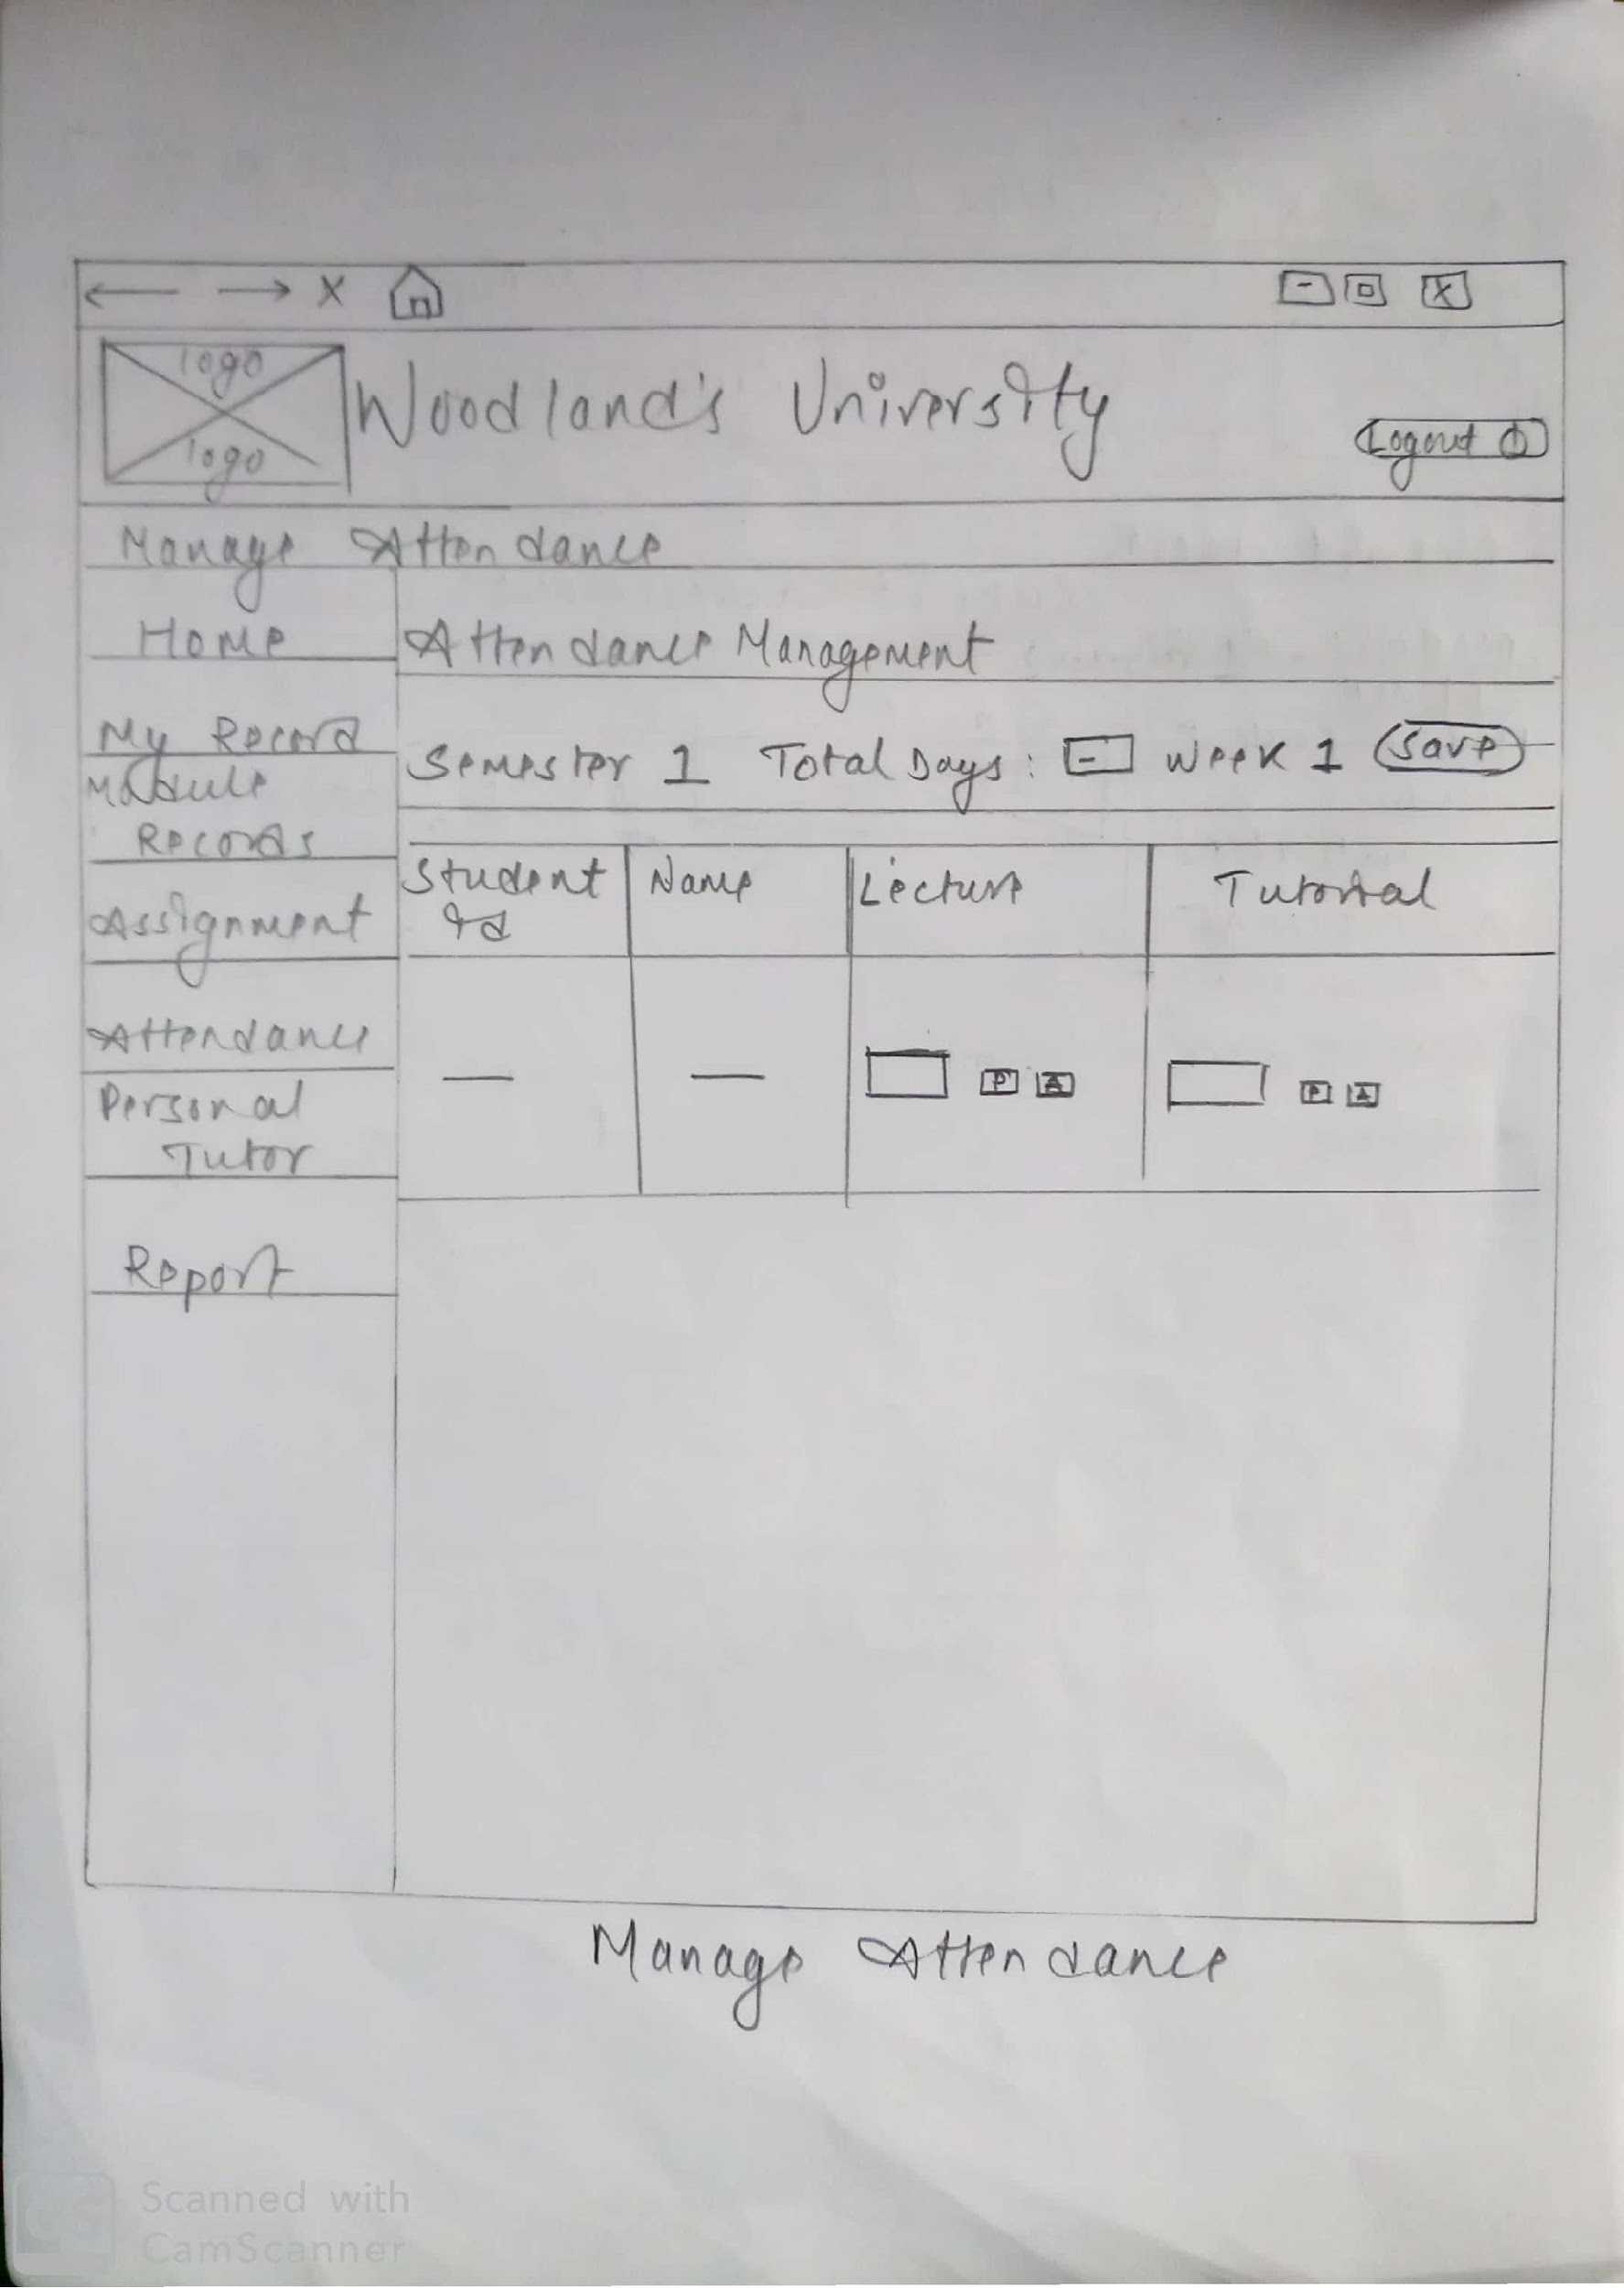 X
- X
logo
logo
Woodland's University
Logout
Manage Attendance
Home
Attendance Management
My Record
Module
Records
Assignment
Attendance
Personal
Tutor
Report
Semester 1 Total Days : - Week 1 Save
Student Name Lecture Tutorial
Id
— — P A P A
Manage Attendance
Scanned with
CamScanner
CS